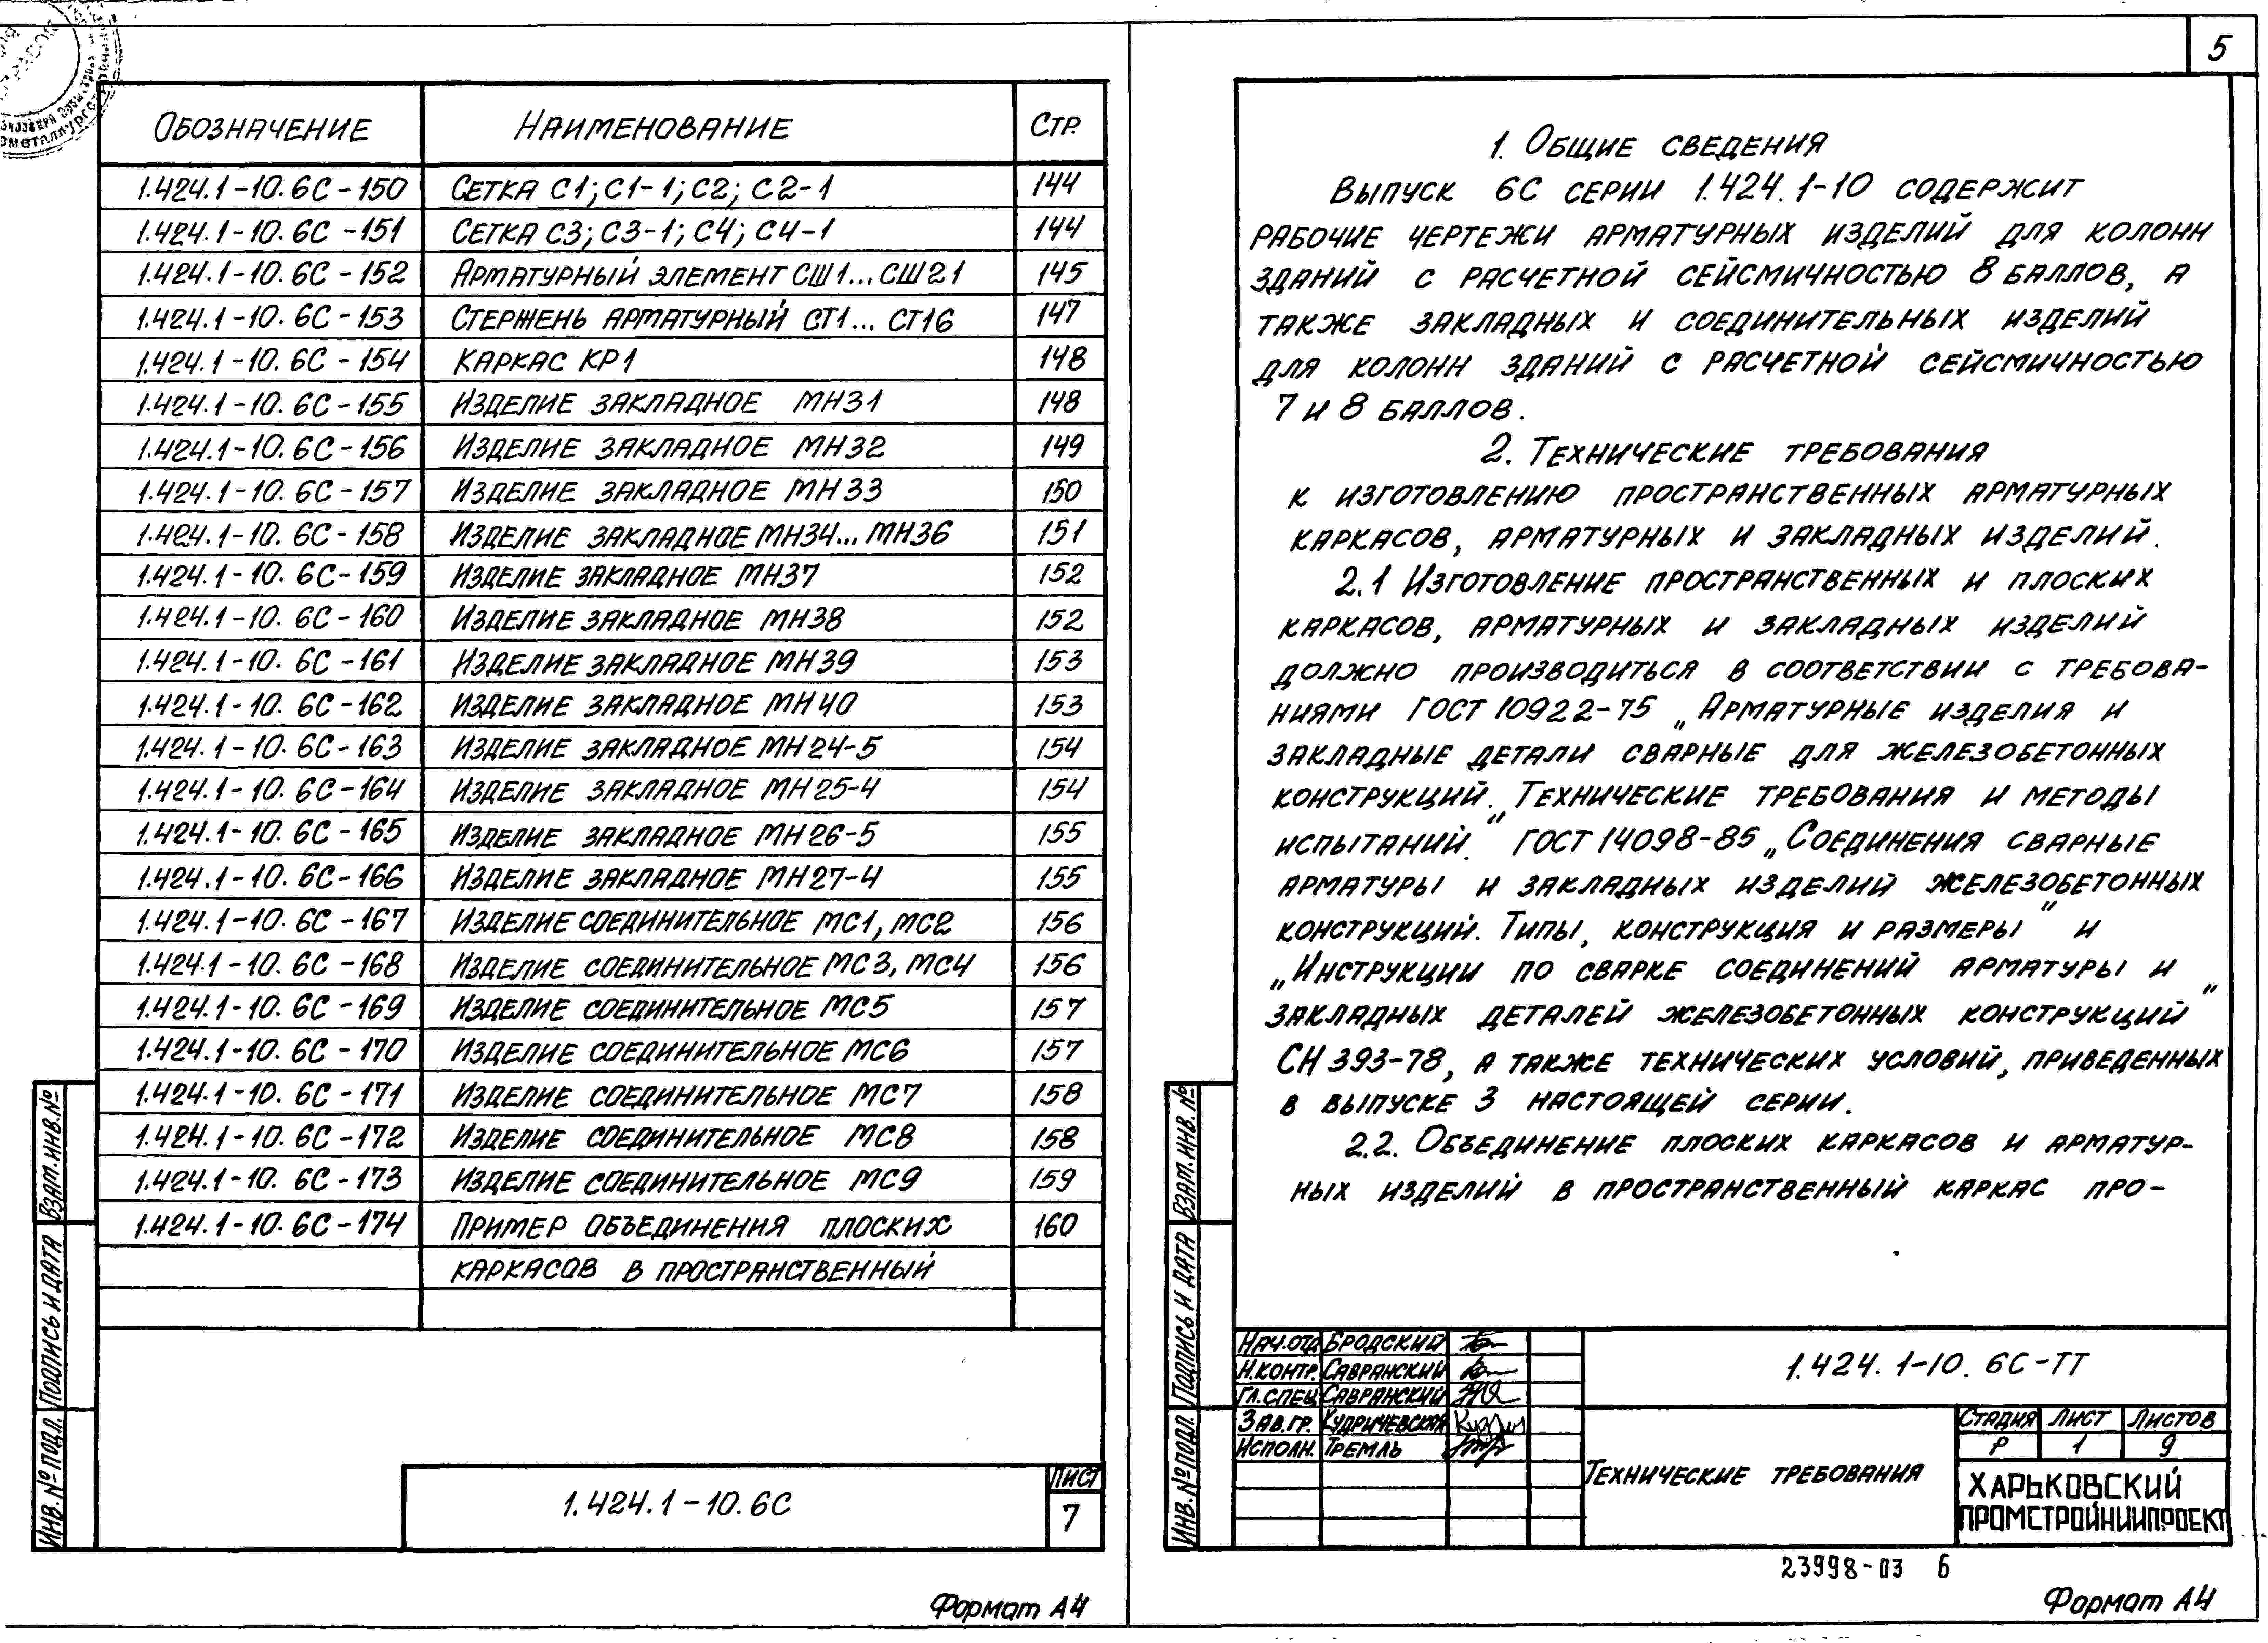 Обозначение Наименование Стр.
1.424.1-10.6С-150 Сетка С1; С1-1; С2; С2-1 144
1.424.1-10.6С-151 Сетка С3; С3-1; С4; С4-1 144
1.424.1-10.6С-152 Арматурный элемент СШ1...СШ21 145
1.424.1-10.6С-153 Стержень арматурный СТ1...СТ16 147
1.424.1-10.6С-154 Каркас КР1 148
1.424.1-10.6С-155 Изделие закладное МН31 148
1.424.1-10.6С-156 Изделие закладное МН32 149
1.424.1-10.6С-157 Изделие закладное МН33 150
1.424.1-10.6С-158 Изделие закладное МН34...МН36 151
1.424.1-10.6С-159 Изделие закладное МН37 152
1.424.1-10.6С-160 Изделие закладное МН38 152
1.424.1-10.6С-161 Изделие закладное МН39 153
1.424.1-10.6С-162 Изделие закладное МН40 153
1.424.1-10.6С-163 Изделие закладное МН24-5 154
1.424.1-10.6С-164 Изделие закладное МН25-4 154
1.424.1-10.6С-165 Изделие закладное МН26-5 155
1.424.1-10.6С-166 Изделие закладное МН27-4 155
1.424.1-10.6С-167 Изделие соединительное МС1, МС2 156
1.424.1-10.6С-168 Изделие соединительное МС3, МС4 156
1.424.1-10.6С-169 Изделие соединительное МС5 157
1.424.1-10.6С-170 Изделие соединительное МС6 157
1.424.1-10.6С-171 Изделие соединительное МС7 158
1.424.1-10.6С-172 Изделие соединительное МС8 158
1.424.1-10.6С-173 Изделие соединительное МС9 159
1.424.1-10.6С-174 Пример объединения плоских 160
каркасов в пространственный
Взам.инв.№
Подпись и дата
Инв.№подл.
1.424.1-10.6С
Лист
7
Формат А4
5
1. Общие сведения
Выпуск 6С серии 1.424.1-10 содержит
рабочие чертежи арматурных изделий для колонн
зданий с расчетной сейсмичностью 8 баллов, а
также закладных и соединительных изделий
для колонн зданий с расчетной сейсмичностью
7 и 8 баллов.
2. Технические требования
к изготовлению пространственных арматурных
каркасов, арматурных и закладных изделий.
2.1 Изготовление пространственных и плоских
каркасов, арматурных и закладных изделий
должно производиться в соответствии с требова-
ниями ГОСТ 10922-75 „Арматурные изделия и
закладные детали сварные для железобетонных
конструкций. Технические требования и методы
испытаний." ГОСТ 14098-85 „Соединения сварные
арматуры и закладных изделий железобетонных
конструкций. Типы, конструкция и размеры" и
„Инструкции по сварке соединений арматуры и
закладных деталей железобетонных конструкций"
СН 393-78, а также технических условий, приведенных
в выпуске 3 настоящей серии.
2.2. Объединение плоских каркасов и арматур-
ных изделий в пространственный каркас про-
Взам.инв.№
Подпись и дата
Инв.№подл.
Нач.отд Бродский
Н.контр. Савранский
Гл.спец Савранский
Зав.гр. Кудричевская
Исполн. Тремль
1.424.1-10.6С-ТТ
Технические требования
Стадия Лист Листов
Р 1 9
ХАРЬКОВСКИЙ
ПРОМСТРОЙНИИПРОЕКТ
23998-03 6
Формат А4